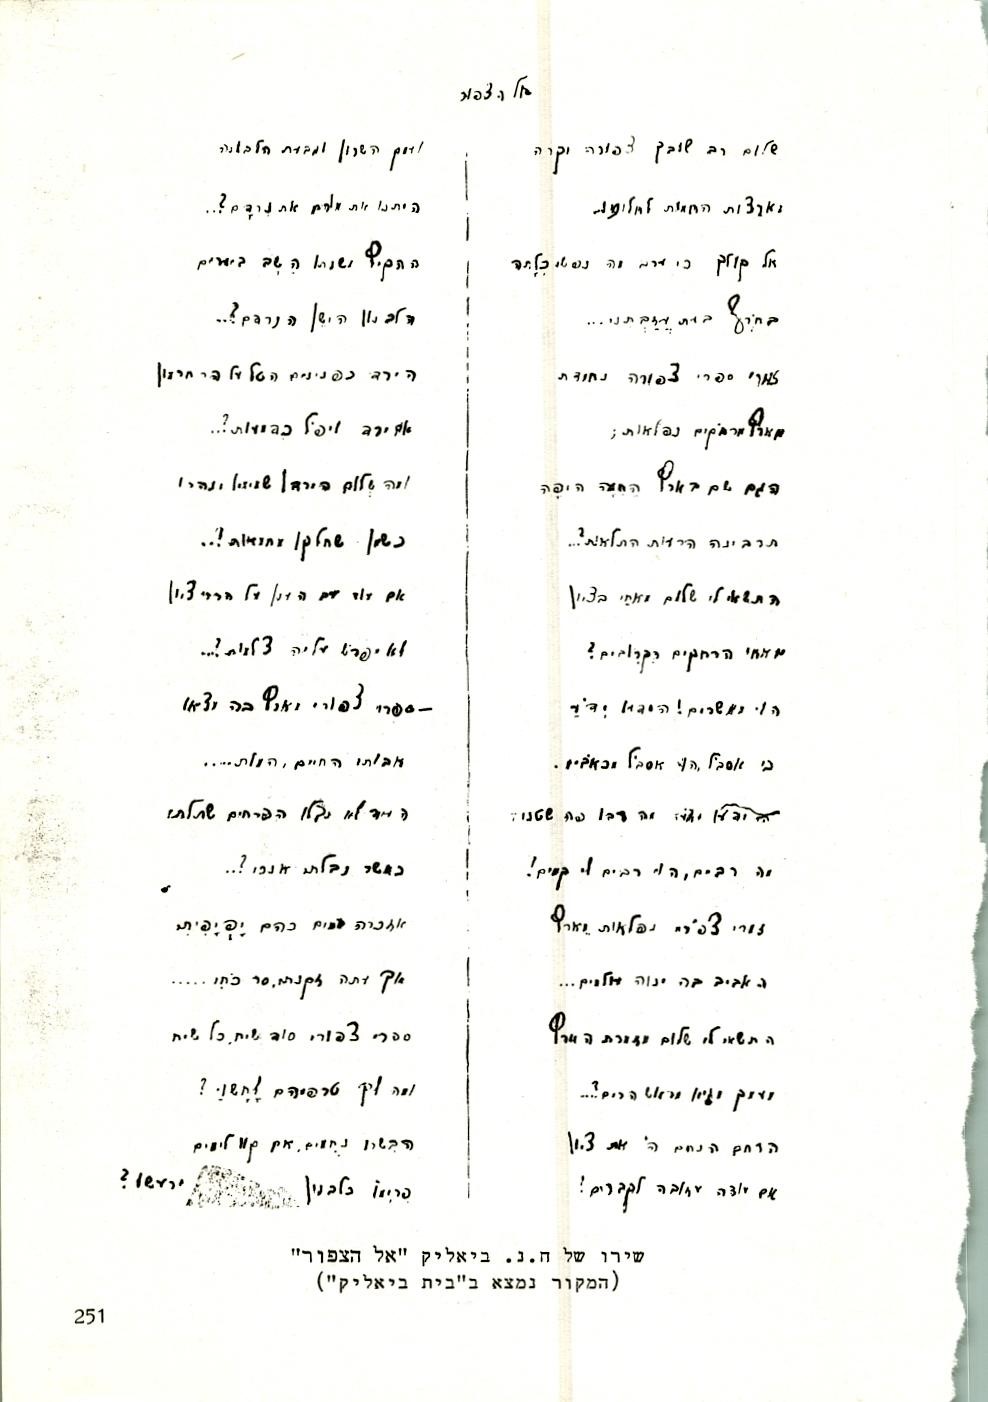 אל הצפור
שלום רב שובך צפורה יקרה
מארצות החום לחלוני
אל קולך כי ערב מה נפשי כלתה
בחרף בעת עזבתני...
זמרי ספרי צפורה נחמדת
מארץ מרחקים נפלאות;
הגם שם בארץ החמה היפה
תרבינה הרעות התלאות?...
התשאי לי שלום מאחי בציון
מאחי הרחקים הקרובים?
הוי מאשרים! הידוע ידעו
כי אסבל, הוי אסבל מכאובים.
הידעו מה רבו פה שטני
מה רבים, הוי רבים לי קמים!
זמרי צפרי נפלאות מארץ
האביב בה ינוה עולמים...
התשאי לי שלום מזמרת הארץ
מעמק מגיא מראש הרים?...
הרחם הנחם ה' את ציון
אם עודה עזובה לקברים!
ועמק השרון וגבעת הלבונה
היתנו את מורם את נרדם?...
ההקיץ משנתו השב ביערים
הלבנון הישן הנרדם?...
הירד כפנינים הטל על הר חרמון
אם ירד ויפל כדמעות?...
ומה שלום הירדן ומימיו
כשמן שחלקו
אם עוד עם הענן על הררי ציון
לא יפרש עליה צלמות?...
—ספרי צפורי מארץ בה מצאו
אבותי החיים, המות.....
האם לא נבלו הפרחים שתלתי
כאשר נבלתי אנכי?..
אזכרה ימים כהם יפיפית
אך עתה זקנתי, סר כחי.....
ספרי צפורי סוד שיח, כל שיח
ומה לך טרפיהם לחשו?
הבשרו נחמים, אם קוו לימים
פרימו כלבנון ירעשו?
שירו של ח.נ. ביאליק "אל הצפור"
(המקור נמצא ב"בית ביאליק")
251